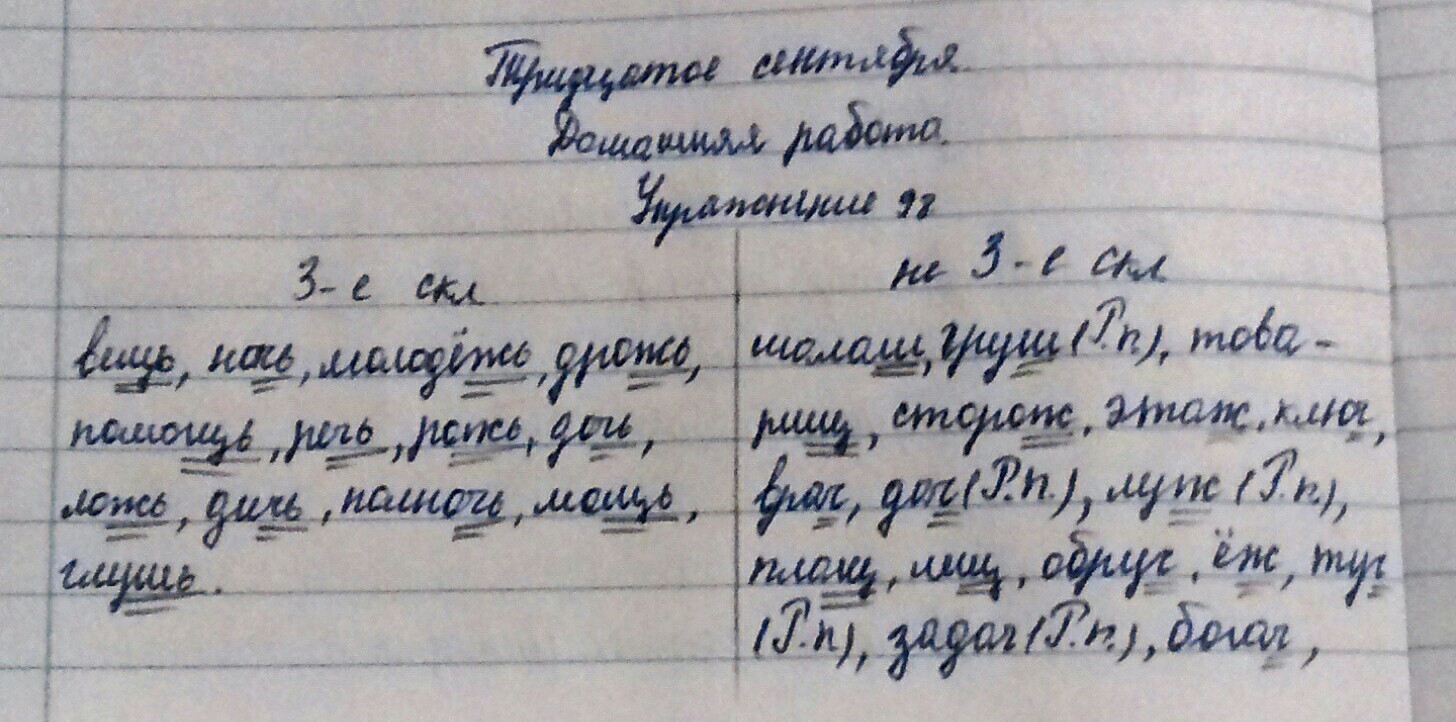 Тридцатое сентября.
Домашняя работа.
Упражнение 98
3-е скл
вещь, ночь, молодёжь, дрожь,
помощь, речь, рожь, дочь,
ложь, дичь, полночь, мощь,
глушь.
не 3-е скл
шалаш, груш (Р.п.), това-
рищ, сторож, этаж, ключ,
врач, дач (Р.п.), луж (Р.п.),
плащ, лещ, обруч, ёж, туч
(Р.п), задач (Р.п.), богач,